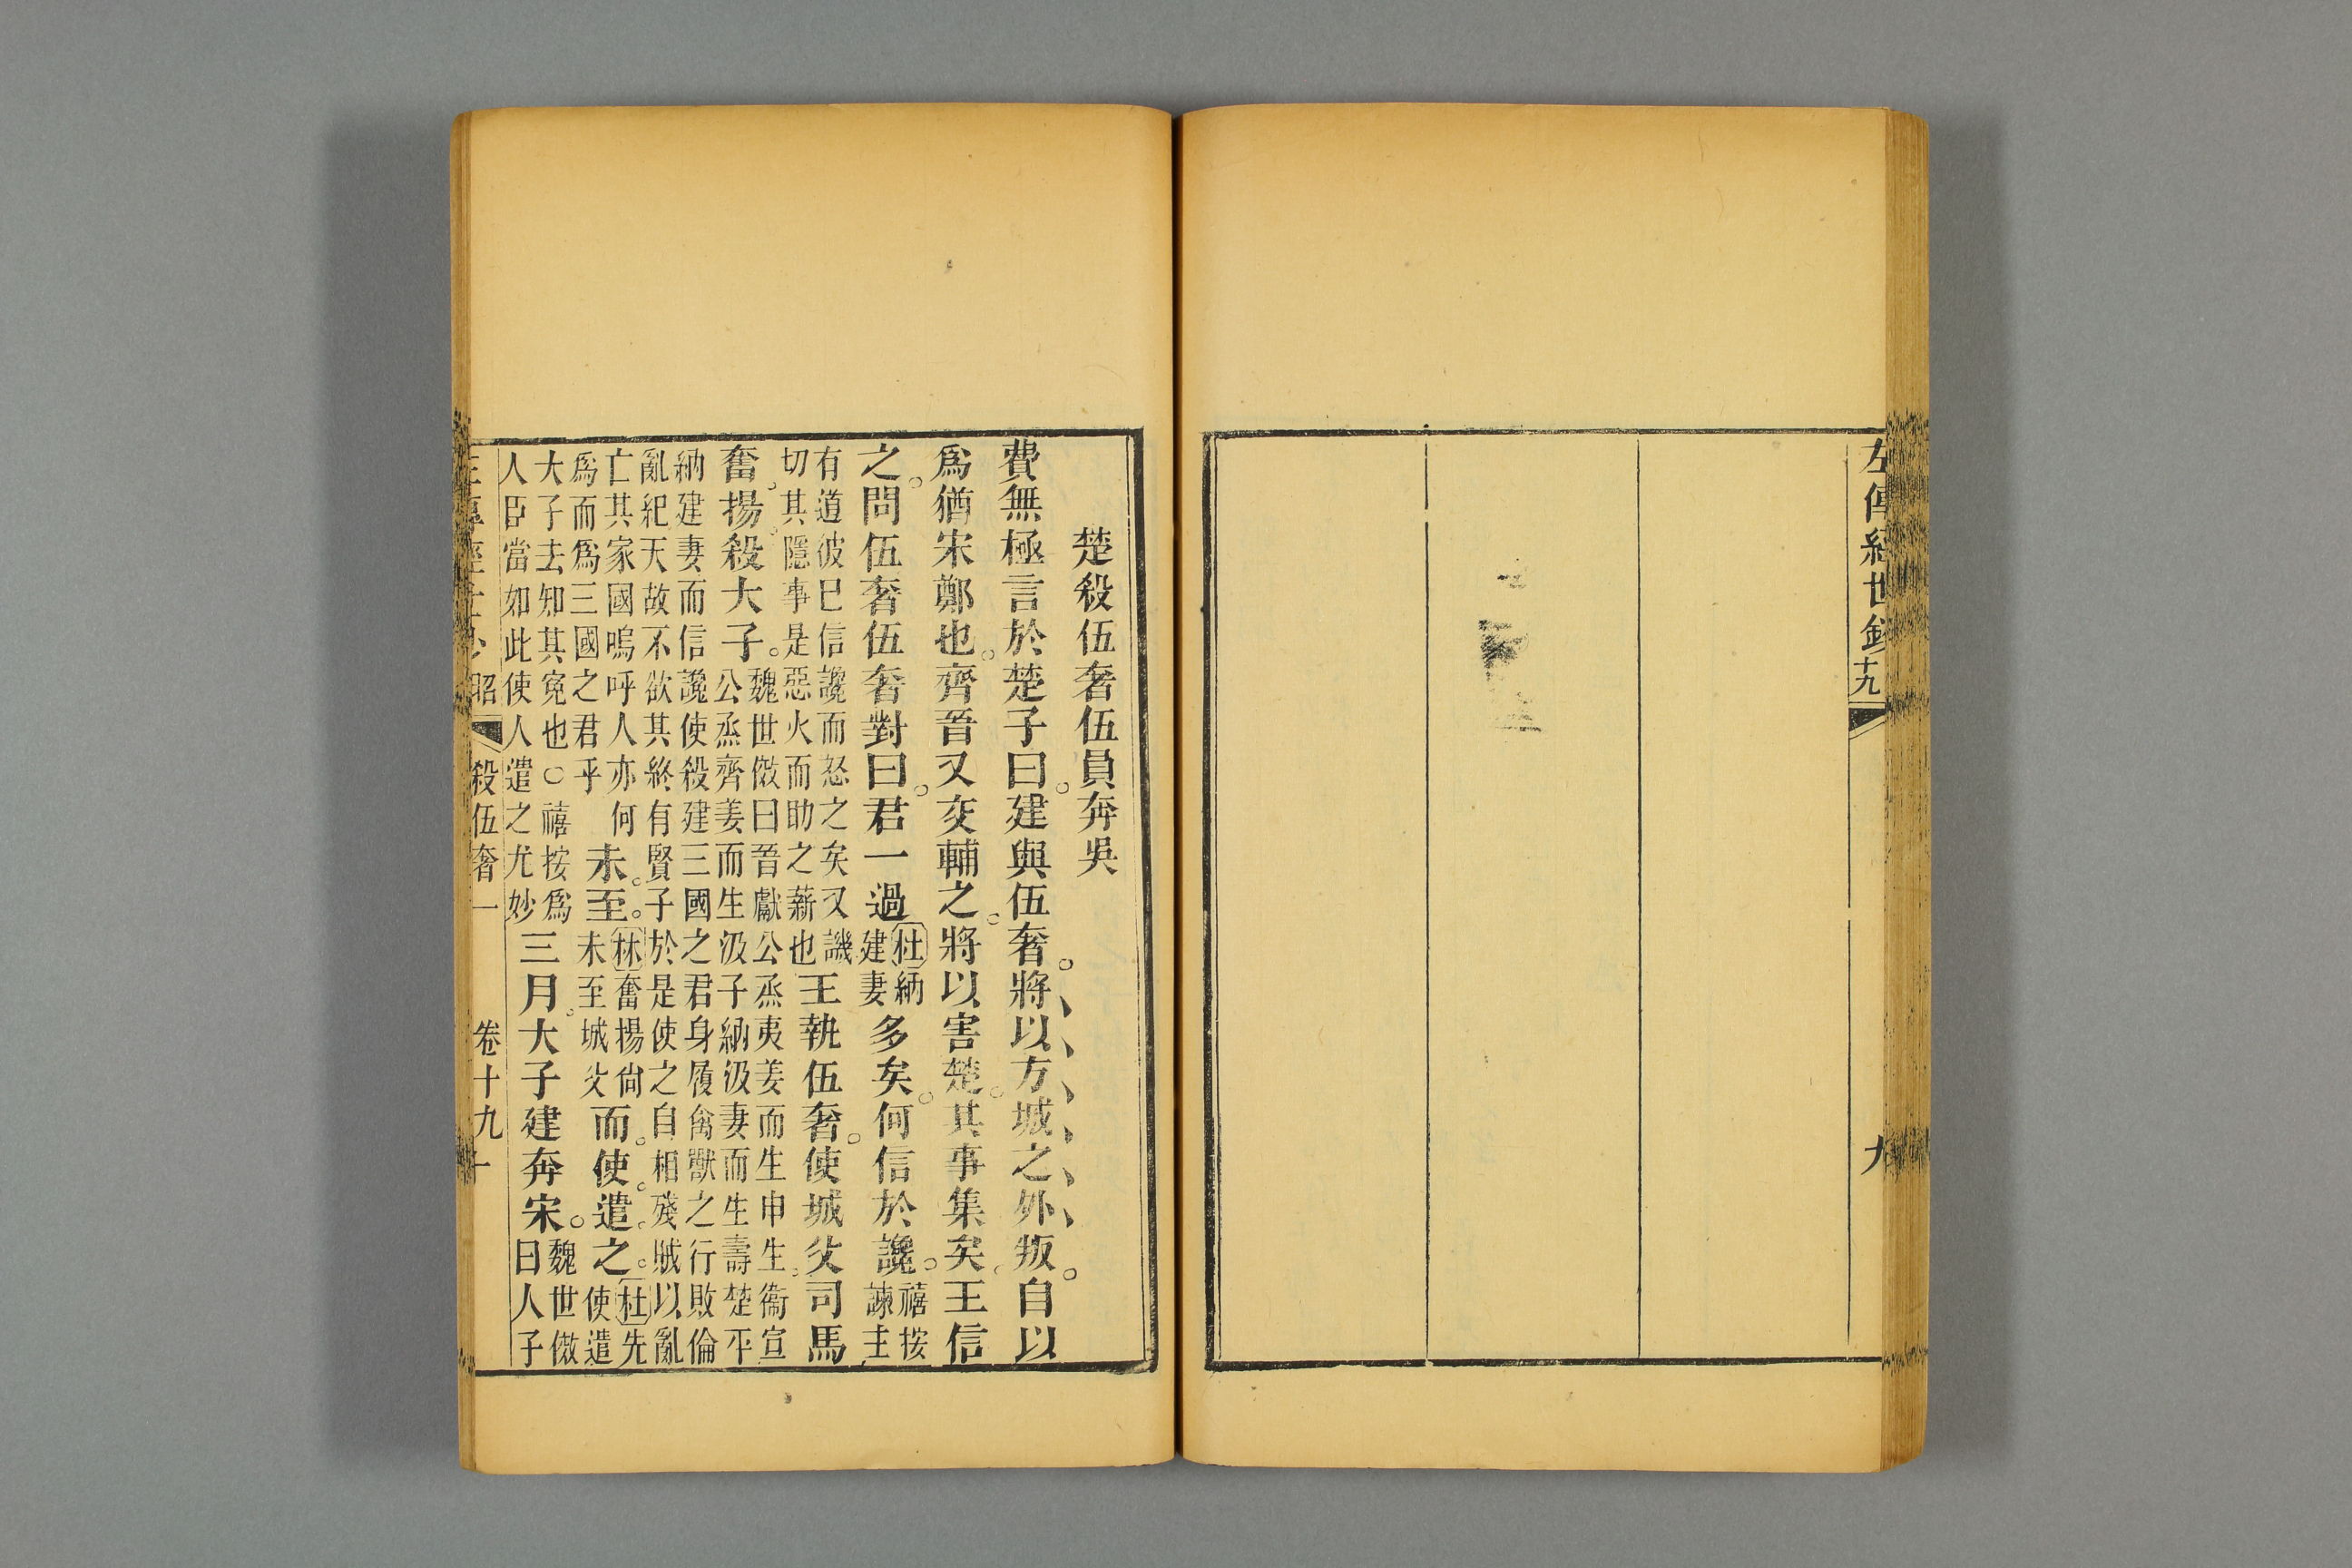 左傳經世鈔
十九
九
楚殺伍奢伍員奔吳
費無極言於楚子曰建與伍奢將以方城之外叛自以
爲猶宋鄭也齊晉又交輔之將以害楚其事集矣王信
之問伍奢伍奢對曰君一過
杜納
建妻
多矣何信於讒
禧按
諫主
有道彼已信讒而怒之矣又譏
切其隱事是惡火而助之薪也
王執伍奢使城父司馬
奮揚殺大子
魏世傚曰晉獻公烝夷姜而生申生衞宣
公烝齊姜而生汲子納汲妻而生壽楚平
納建妻而信讒使殺建三國之君身履禽獸之行敗倫
亂紀天故不欲其終有賢子於是使之自相殘賊以亂
亡其家國嗚呼人亦何
爲而爲三國之君乎
未至
林奮揚尙
未至城父
而使遣之
杜先
使遣
大子去知其寃也○禧按爲
人臣當如此使人遣之尤妙
三月大子建奔宋
魏世傚
曰人子
昭
殺伍奢一
卷十九